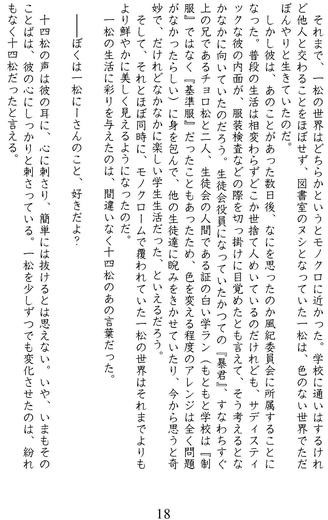 それまで、一松の世界はどちらかというとモノクロに近かった。学校に通いはするけれ
ど他人と交わることをほぼせず、図書室のヌシとなっていた一松は、色のない世界でただ
ぼんやりと生きていた。
しかし彼は、あのことがあった数日後、なにを思ったのか風紀委員会に所属することに
なった。普段の生活は相変わらずどこか世捨て人めいているのだけれども、サディスティ
ックな彼の内面が、服装検査などの際を切っ掛けに目覚めたとも言えて、そう考えるとな
かなかに向いていたのだろう。生徒会役員になっていたかつての『暴君』、すなわちすぐ
上の兄であるチョロ松と二人、生徒会の人間である証の白い学ラン（もともと学校は『制
服』ではなく『基準服』だったこともあったため、色を変える程度のアレンジは全く問題
がなかったらしい）に身を包んで、他の生徒達に睨みをきかせていたり、今から思うと奇
妙で、だけれどなかなかに楽しい学生生活だった、といえるだろう。
そして、それとほぼ同時に、モノクロームで覆われていた一松の世界はそれまでよりも
より鮮やかに美しく見えるようになったのだ。
一松の生活に彩りを与えたのは、間違いなく十四松のあの言葉だった。
――ぼくは一松にーさんのこと、好きだよ？
十四松の声は彼の耳に、心に刺さり、簡単には抜けるとは思えない。いや、いまもその
ことばは、彼の心にしっかりと刺さっている。一松を少しずつでも変化させたのは、紛れ
もなく十四松だったと言える。
18